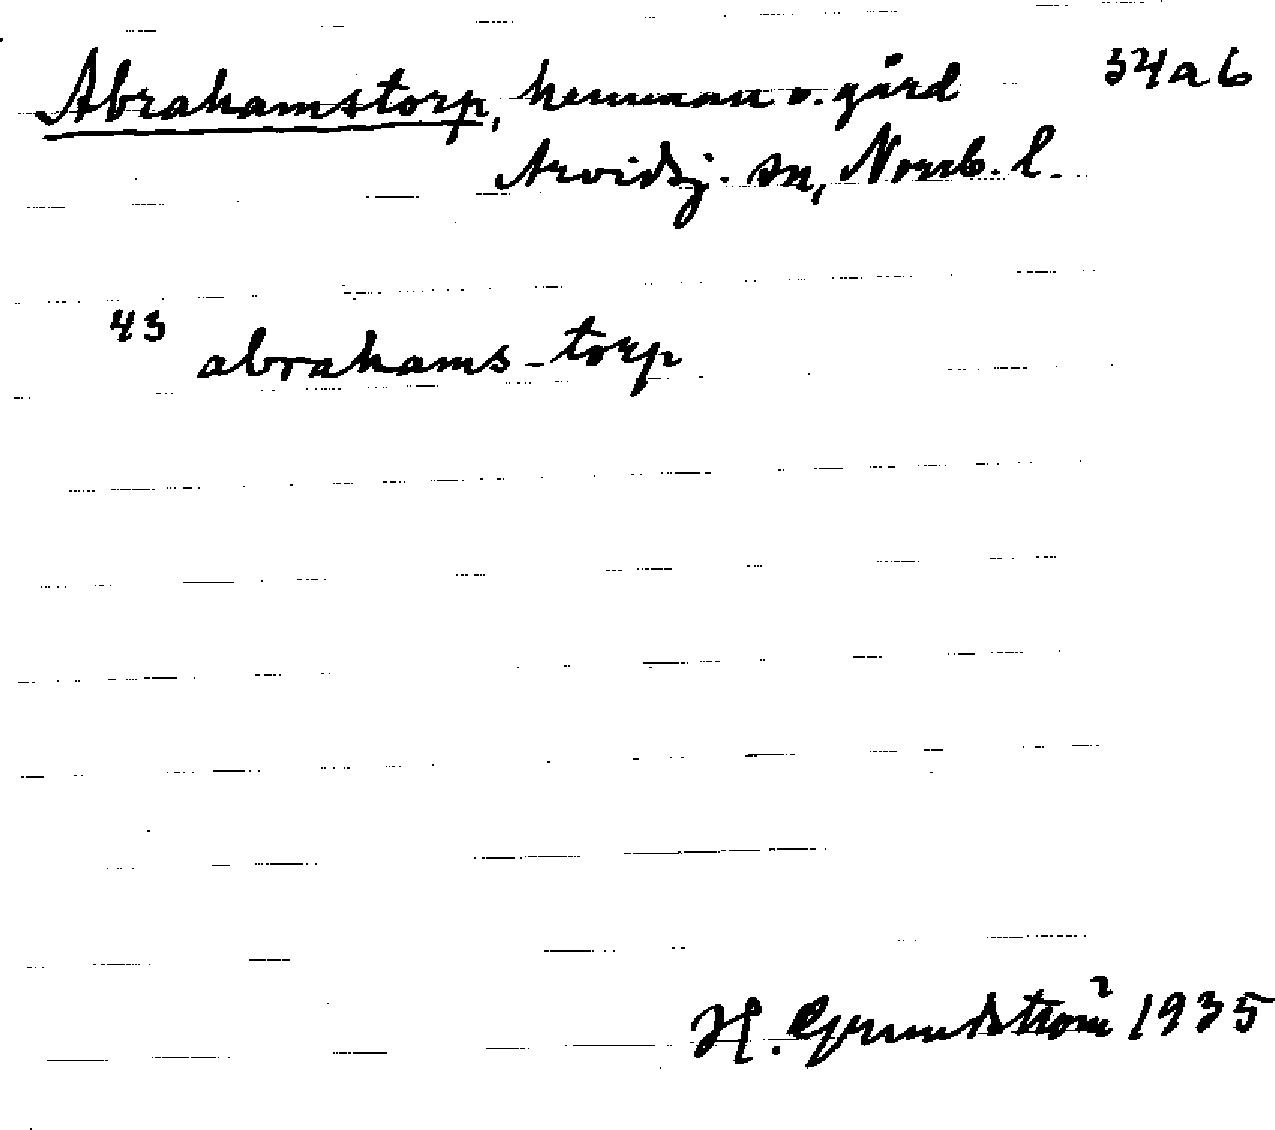 Abrahamstorp, hemman o. gård 54a6
Arvidsj. sn, Norrb. l.
43 abrahams-torp
H. Grundström 1935